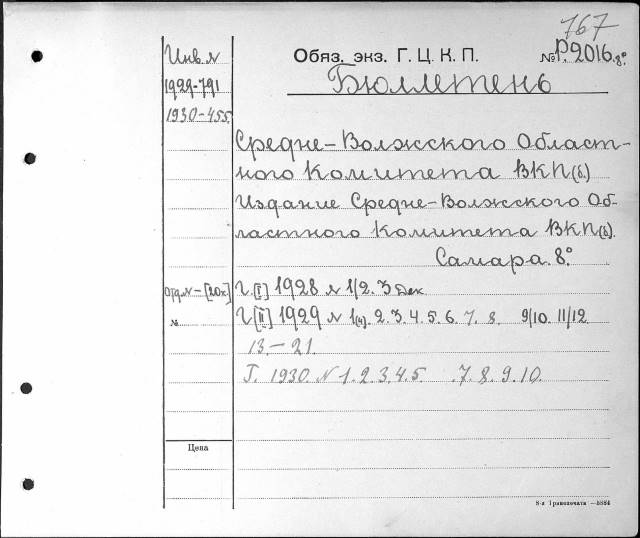 767
Инв. N
Обяз. экз. Г. Ц. К. П.
№ Р.2016. 8°
1929-791
Бюллетень
1930-455.
Средне-Волжского Област-
ного Комитета ВКП(б.)
Издание Средне-Волжского Об-
ластного Комитета ВКП(б).
Самара. 8°.
отд N - [20к]
Г. [I] 1928 N 1/2. 3 Дек
№
Г. [II] 1929 N 1(4). 2. 3. 4. 5. 6. 7. 8. 9/10. 11/12.
13.-21.
Г. 1930. N 1. 2. 3. 4. 5. .7. 8. 9. 10.
Цена
8-я Транспечати —5884